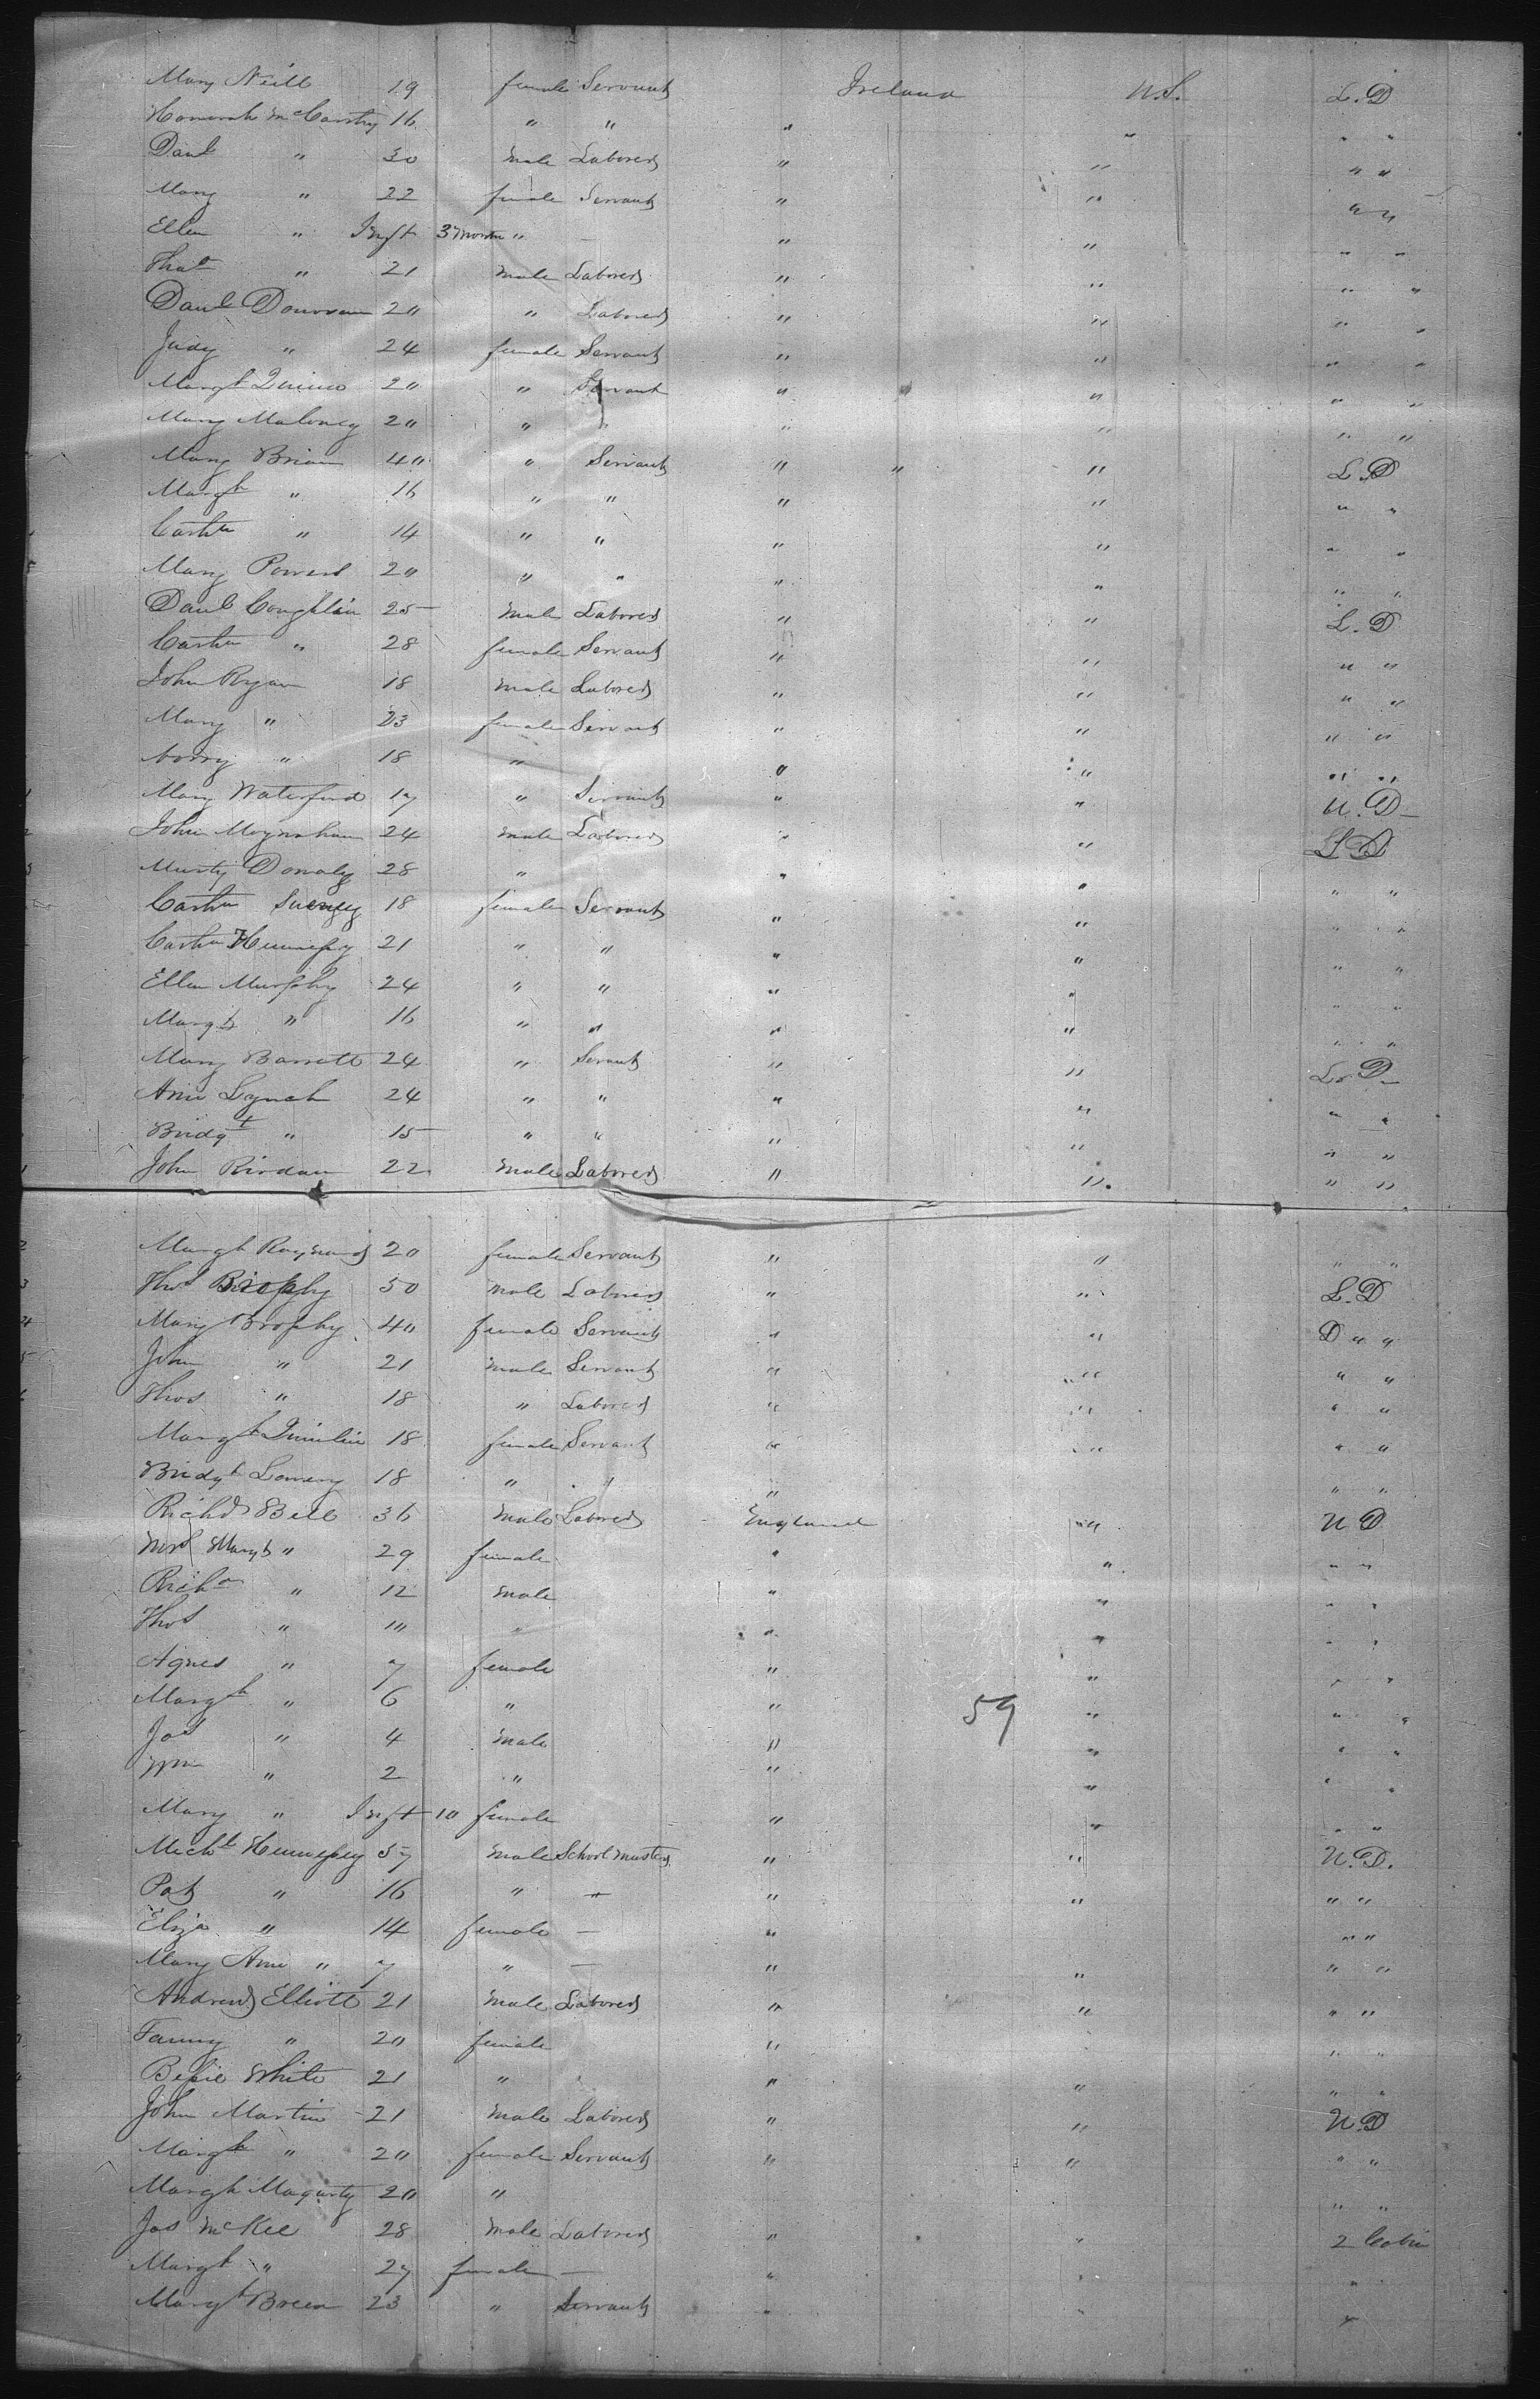 Mary Neill 19 female Servant Ireland U.S. L.D
Honorah McCarthy 16 " " " " " "
Danl " 30 male Laborer " " " "
Mary " 22 female Servant " " " "
Ellen " Inft 3 months " — " " " "
" 21 male Laborer " " " "
Danl Donovan 20 " Laborer " " " "
Judy " 24 female Servant " " " "
Margt 20 " Servant " " " "
Mary Maloney 20 " " " " " "
Mary Brian 40 " Servant " " " L.D
Margt " 16 " " " " " "
Cathn " 14 " " " " " "
Mary Powers 20 " " " " " "
Danl Coughlin 25 male Laborer " " L.D
Cathn " 28 female Servant " " " "
John Ryan 18 male Laborer " " " "
Mary " 23 female Servant " " " "
" 18 " " " " "
Mary Waterford 17 " Servant " " U.D
John Moynahan 24 male Laborer " " L D
28 " " " " "
Cathn 18 female Servant " " " "
Cathn Hennessy 21 " " " " " "
Ellen Murphy 24 " " " " " "
Margt " 16 " " " " " "
Mary Barrett 24 " Servant " " L.D
Ann Lynch 24 " " " " " "
Bridgt " 15 " " " " " "
John Riordan 22 male Laborer " " " "
Margt 20 female Servant " " " "
Thos Brophy 50 male Laborer " " L.D
Mary Brophy 40 female Servant " " D " "
John " 21 male Servant " " " "
Thos " 18 " Laborer " " " "
Margt 18 female Servant " " " "
Bridgt 18 " " " " "
Richd Bell 36 male Laborer England " U D
Mrs Margt " 29 female " " " "
Richd " 12 male " " " "
Thos " 10 " " " " "
Agnes " 7 female " " " "
Margt " 6 " " 59 " " "
Jas " 4 male " " " "
Wm " 2 " " " " "
Mary " Inft 10 female " " " "
Michl Hennessy 57 male School master " " U.D.
Pat " 16 " — " " " "
Eliza " 14 female — " " "
Mary Ann " 7 " — " " " "
Andrew Elliott 21 male Laborer " " " "
Fanny " 20 female " " "
Bessie White 21 " " " " "
John Martin 21 male Laborer " " U.D
Margt " 20 female Servant " " " "
Margt Magarty 20 " " "
Jas McKee 28 male Laborer " " 2 Cabin
Margt " 27 female — " " "
Margt Breen 23 " Servant " " "